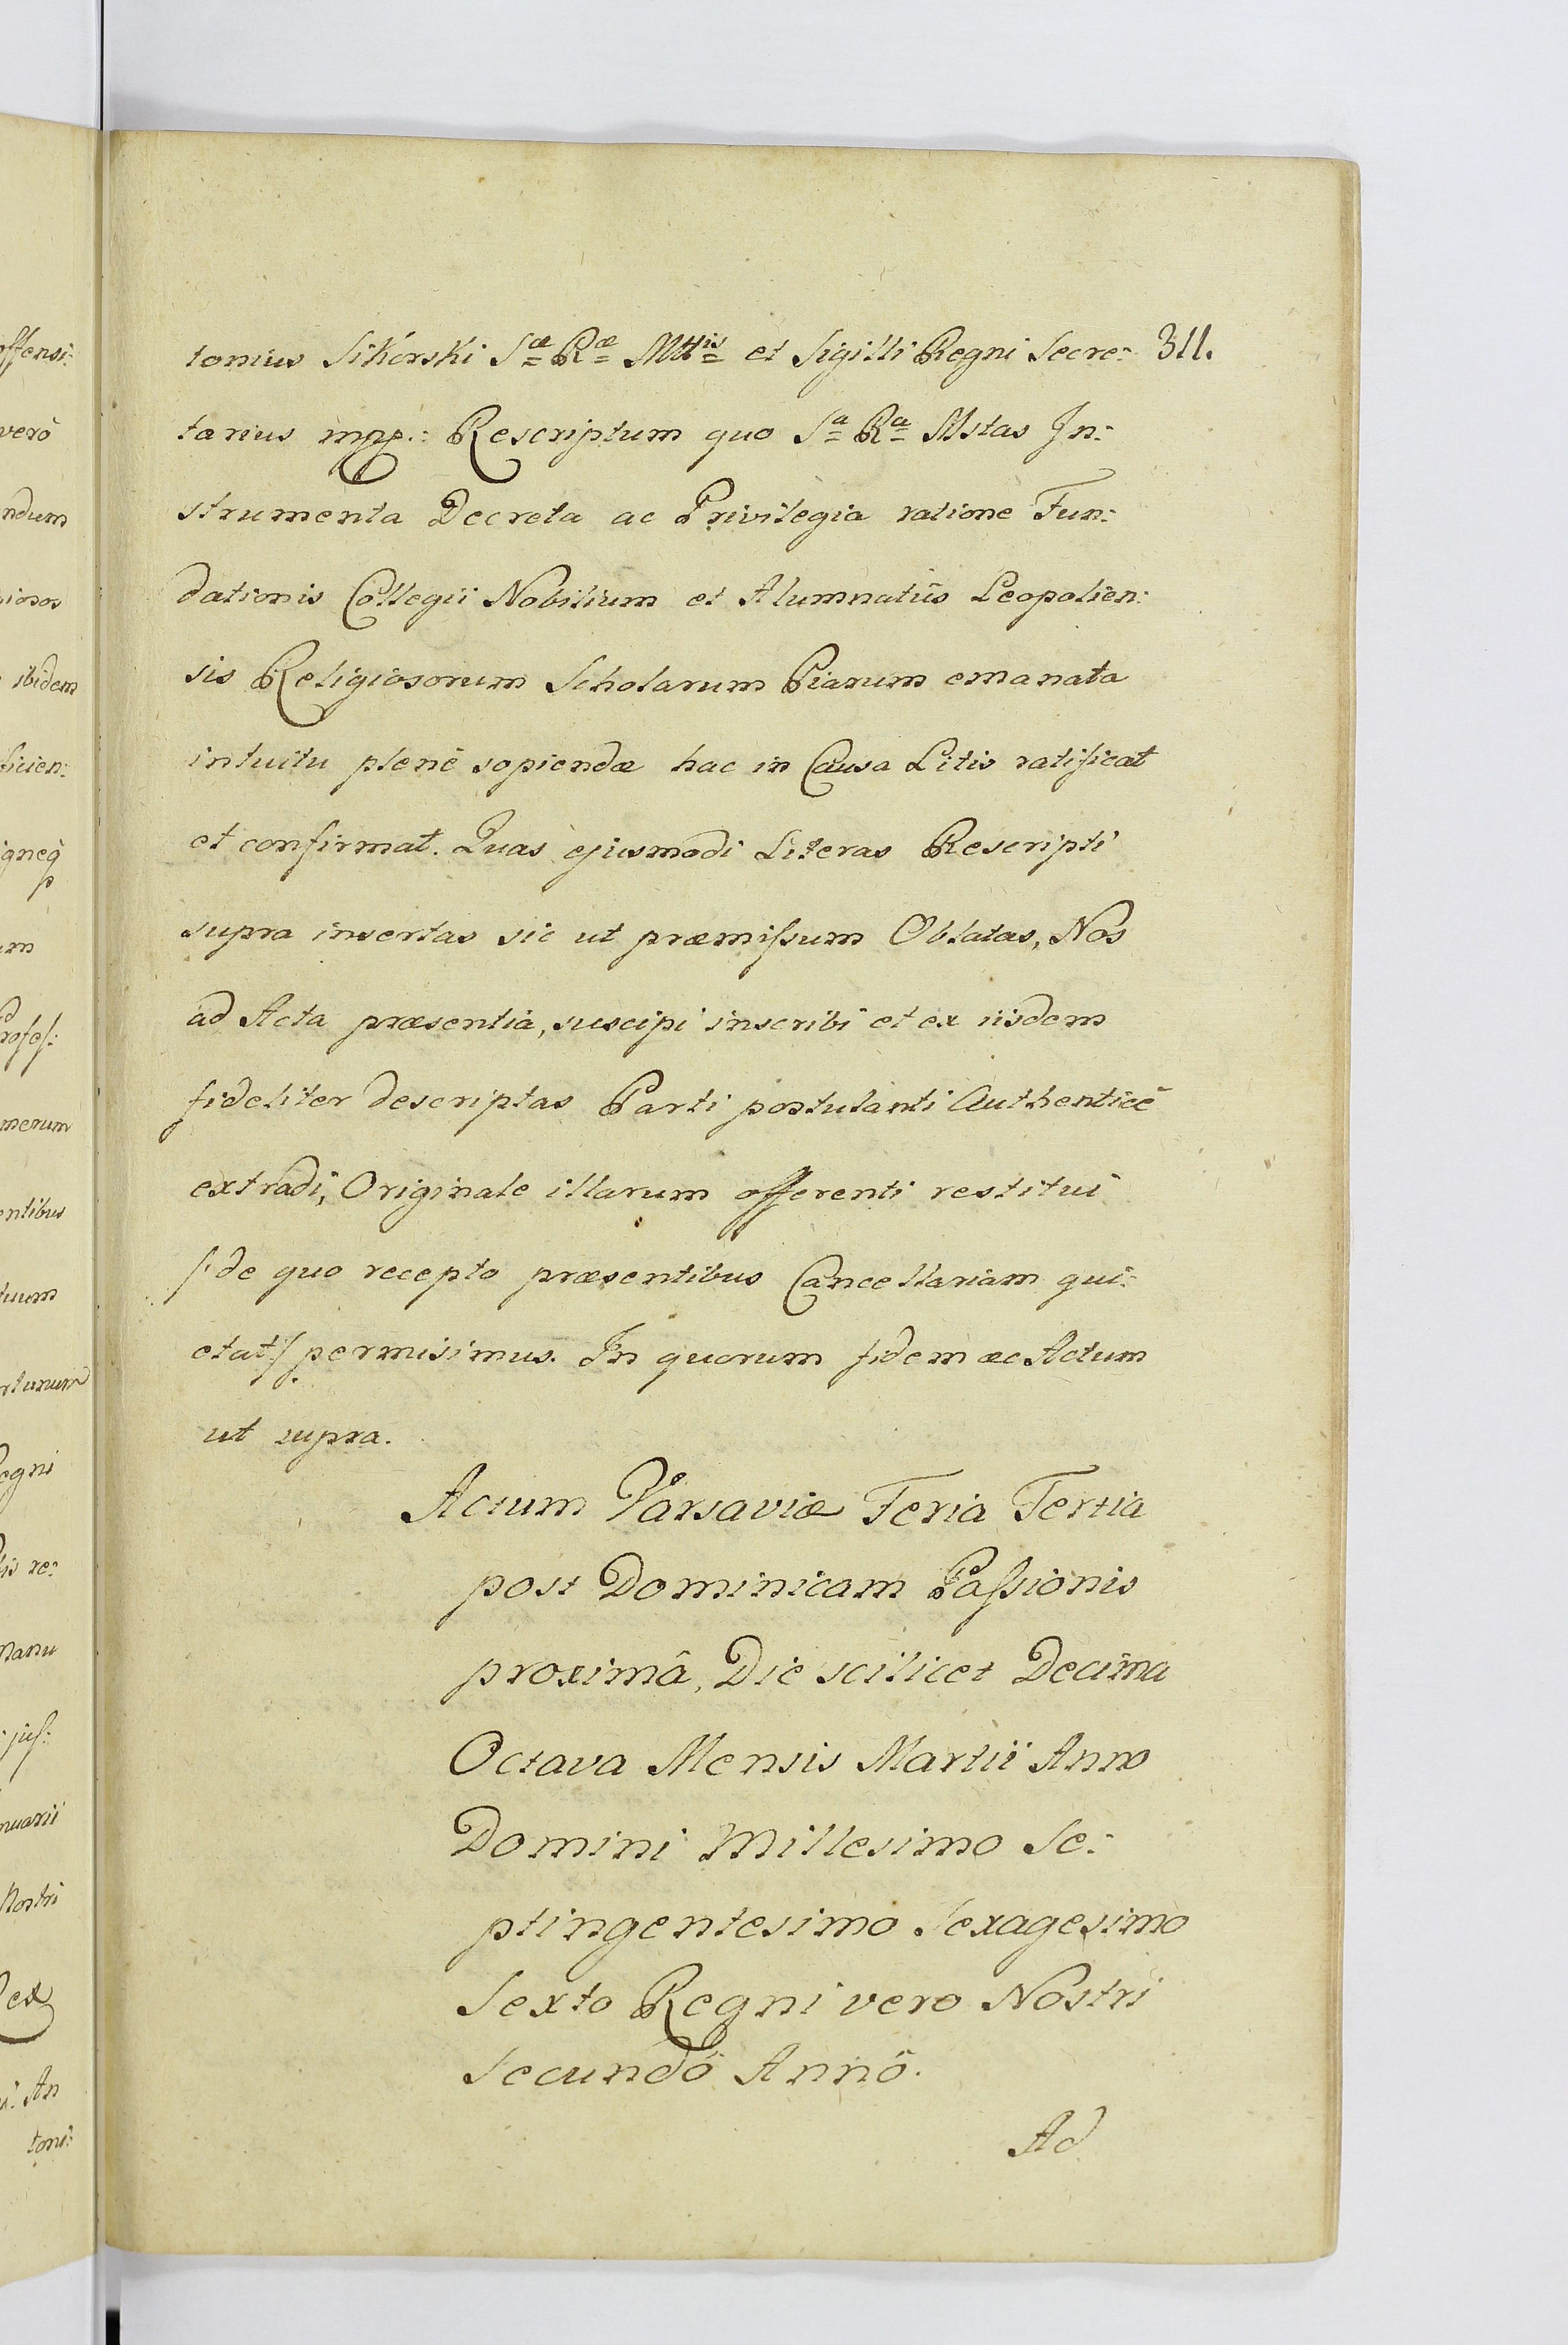 tonius Sikorski Sæ Ræ Mttis et Sigilli Regni Secre: 311.
tarius mpp.: Rescriptum quo Sa Ra Mstas In:
strumenta Decreta ac Privilegia ratione Fun:
dationis Collegii Nobilium et Alumnatûs Leopolien:
sis Religiosorum Scholarum Piarum emanata
intuitu plenè sopiendæ hac in Causa Litis ratificat
et confirmat. Quas ejusmodi Literas Rescripti
supra insertas sic ut præmiſsum Oblatas, Nos
ad Acta præsentia, suscipi inscribi et ex iisdem
fideliter descriptas Parti postulanti Authenticè
extradi, Originale illarum offerenti restitui
/:de quo recepto præsentibus Cancellariam qui:
etat:/ permisimus. In quorum fidem ac Actum
ut supra.
Actum Varsaviæ Feria Tertia
post Dominicam Paſsionis
proximâ, Die scilicet Decima
Octava Mensis Martii Anno
Domini Millesimo Se:
ptingentesimo Sexagesimo
Sexto Regni vero Nostri
Secundô Annô.
Ad
offensi:
verò
ndum
giosos
ibidem
ficien:
um
merum
entibus
tuum
rtunum
Regni
re:
manu
nuarii
Nostri
Rex
An
toni: